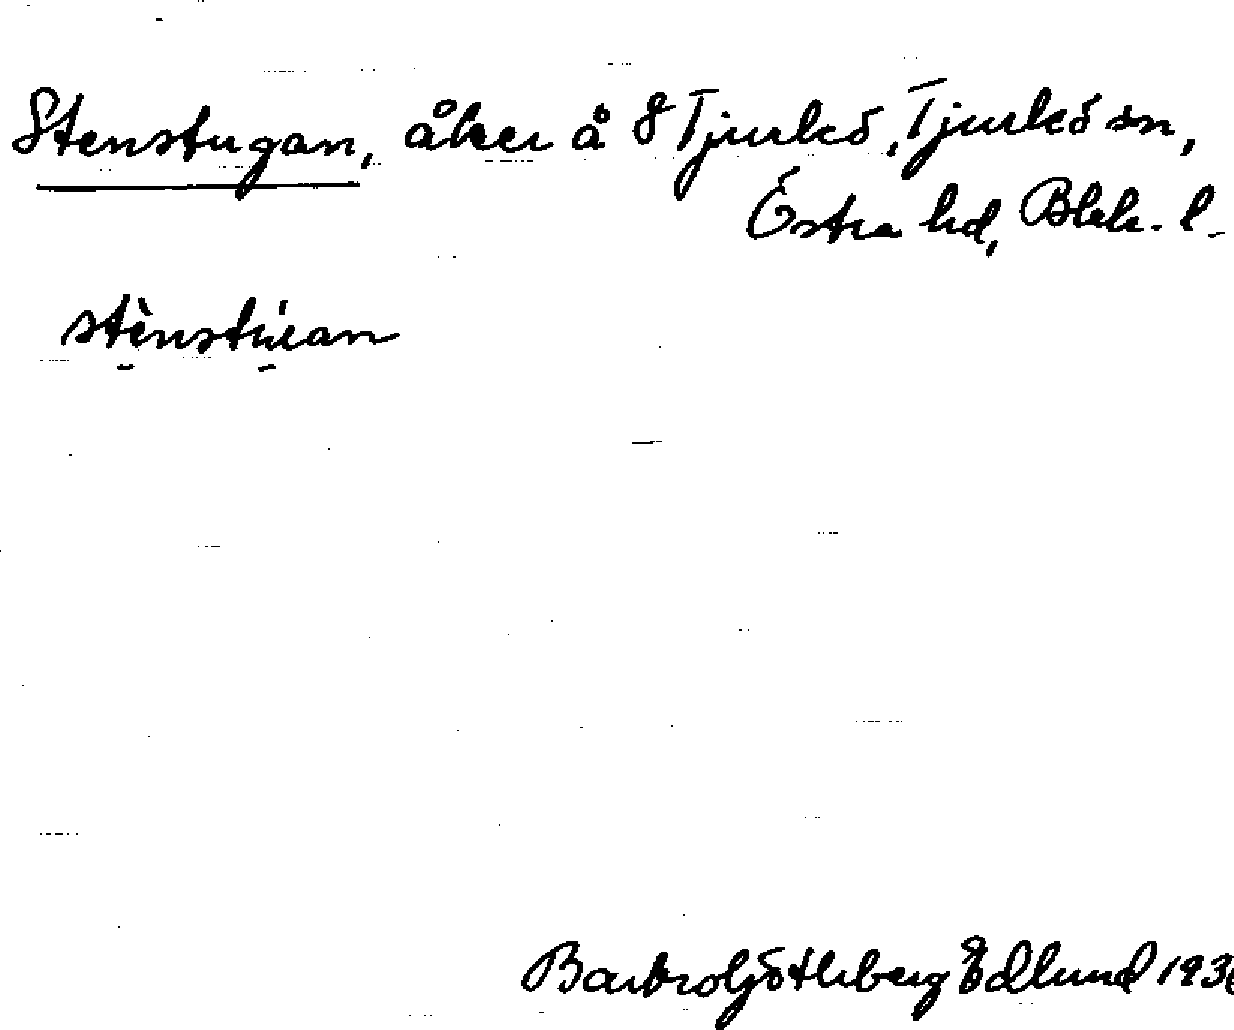 Stenstugan, åker å 8 Tjurkö, Tjurkö sn,
Östra hd, Blek. l.
stènstúan
Barbro Götheberg Edlund 193